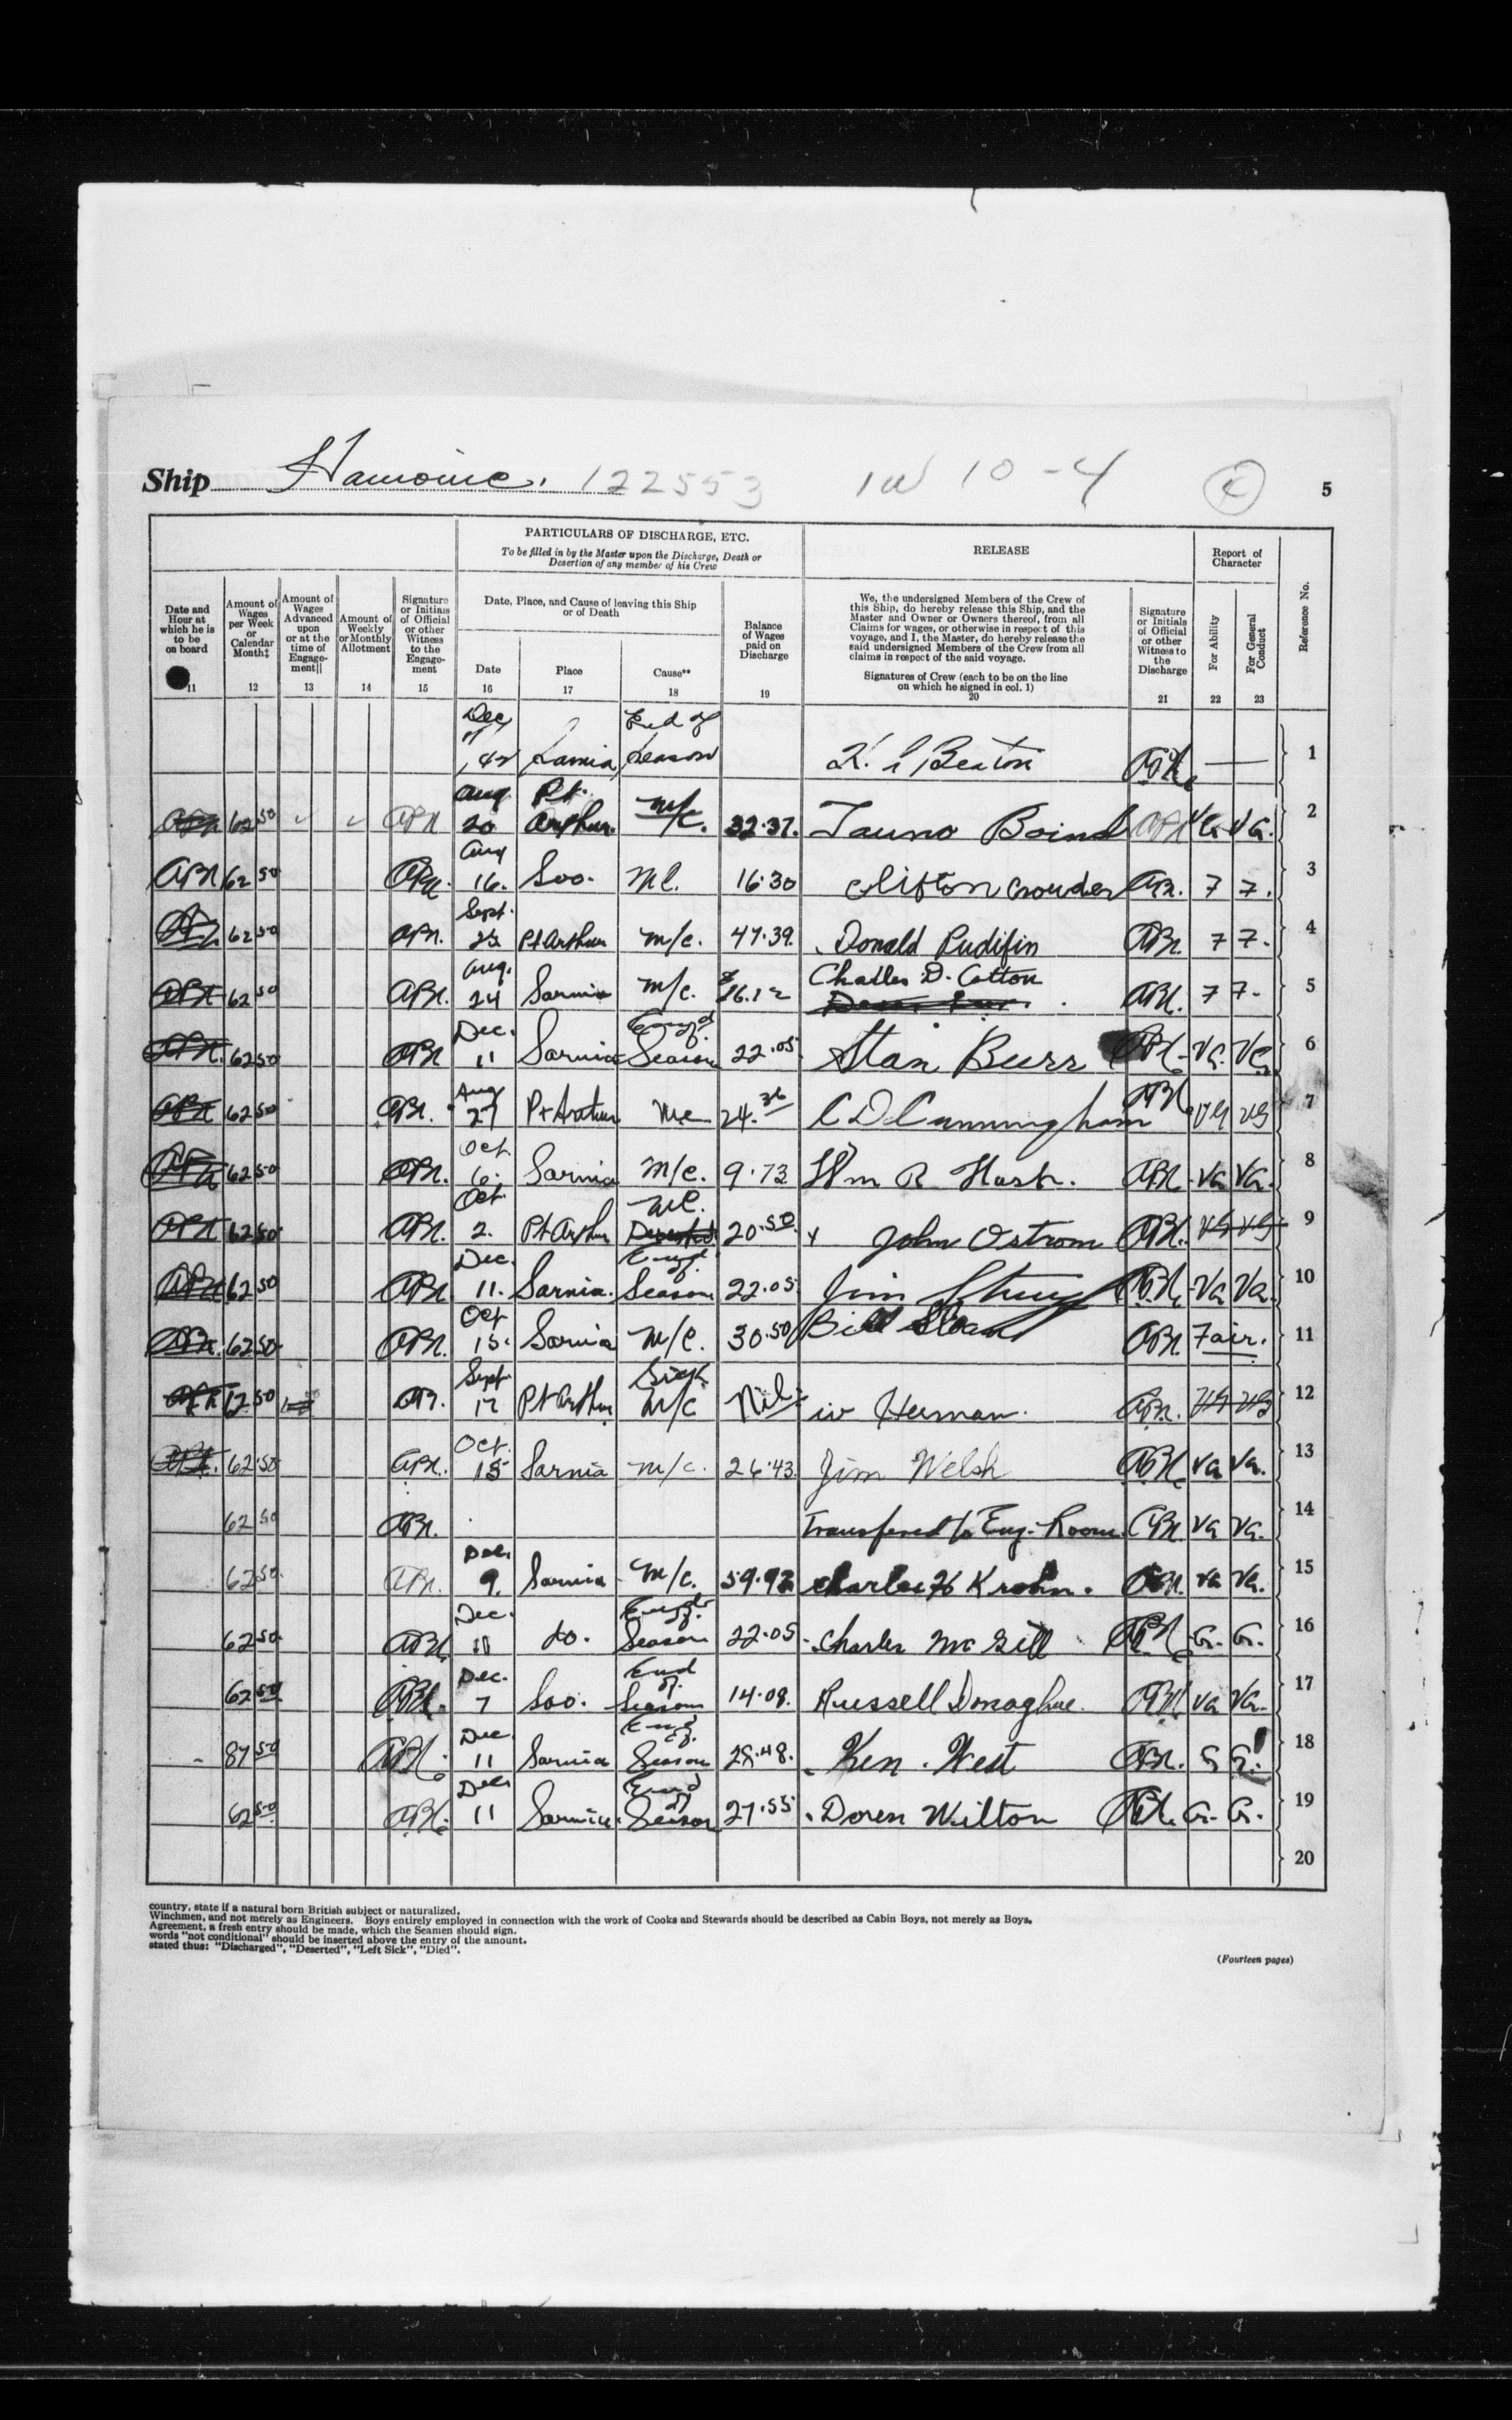 Ship Hamonic. 122553 10-4 5
PARTICULARS OF DISCHARGE, ETC.
To be filled in by the Master upon the Discharge, Death or
Desertion of any member of his Crew
RELEASE
Report of
Character
Date and
Hour at
which he is
to be
on board
11
Amount of
Wages
per Week
or
Calendar
Month‡
12
Amount of
Wages
Advanced
upon
or at the
time of
Engage-
ment||
13
Amount of
Weekly
or Monthly
Allotment
14
Signature
or Initials
of Official
or other
Witness
to the
Engage-
ment
15
Date, Place, and Cause of leaving this Ship
or of Death
Date
16
Place
17
Cause**
18
Balance
of Wages
paid on
Discharge
19
We, the undersigned Members of the Crew of
this Ship, do hereby release this Ship, and the
Master and Owner or Owners thereof, from all
Claims for wages, or otherwise in respect of this
voyage, and I, the Master, do hereby release the
said undersigned Members of the Crew from all
claims in respect of the said voyage.
Signatures of Crew (each to be on the line
on which he signed in col. 1)
20
Signature
or Initials
of Official
or other
Witness to
the
Discharge
21
For Ability
22
For General
Conduct
23
Reference No.
Dec 42 Sarnia End of Season Beaton — 1
62 50 Aug 20 Pt. Arthur. m/c. 32.37. Tauno VG VG. 2
62 50 Aug 16. Soo. MC. 16.30 Clifton Crowder 7 7. 3
62 50 Sept. 23 Pt Arthur m/c. 47.39. Donald Pudifin 7 7. 4
62 50 Aug. 24 Sarnia m/c. Charles D. Cotton 7 7. 5
62 50 Dec. 11 Sarnia End of Season 22.05 Stan Burr VG. VG. 6
62 50 Aug 27 Pt Arthur MC 24.36 C D Cunningham VG VG 7
62 50 Oct 6. Sarnia M/C. 9.73 Wm R Hash. VG VG. 8
62 50 Oct 2. Pt Arthur MC. Deserted 20.50 x John Ostrom VG VG 9
62 50 Dec. 11. Sarnia. End of Season 22.05 Jim VG VG. 10
62 50 Oct 15. Sarnia M/C. 30.50 Bill Sloan Fair. 11
12 50 Sept. 12 Pt Arthur Sick M/C Nil Herman. VG VG 12
62 50 Oct. 15 Sarnia m/c. 26.43. Jim Welsh VG VG. 13
62 50 Transfered to Eng. Room. VG VG. 14
62 50 Dec. 9. Sarnia M/C. 59.92 Charles H Krohn. VG VG. 15
62 50 Dec. do. End of Season 22.05 Charles McGill G. G. 16
62 50 Dec. 7 Soo. End of Season 14.08. Russell Donaghue. VG VG. 17
87 50 Dec. 11 Sarnia End of Season 28.48. Ken. West G G. 18
62 50 Dec. 11 Sarnia. End of Season 27.55 Doren Wilton G. G. 19
20
country, state if a natural born British subject or naturalized.
Winchmen, and not merely as Engineers. Boys entirely employed in connection with the work of Cooks and Stewards should be described as Cabin Boys, not merely as Boys.
Agreement, a fresh entry should be made, which the Seamen should sign.
words "not conditional" should be inserted above the entry of the amount.
stated thus: "Discharged", "Deserted", "Left Sick", "Died".
(Fourteen pages)